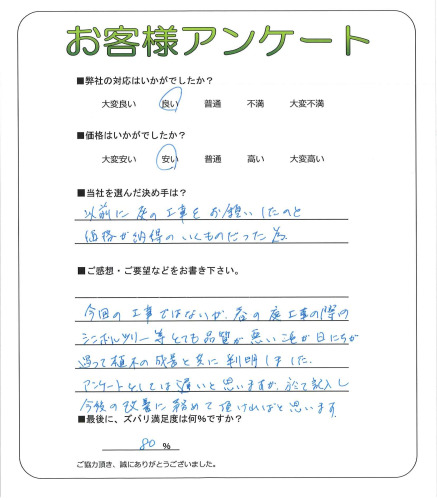 お客様アンケート
■弊社の対応はいかがでしたか？
大変良い 良い 普通 不満 大変不満
■価格はいかがでしたか？
大変安い 安い 普通 高い 大変高い
■当社を選んだ決め手は？
以前に庭の工事をお願いしたのと
価格が納得のいくものだった為
■ご感想・ご要望などをお書き下さい。
今回の工事ではないが、春の庭工事の際の
シンボルツリー等とても品質が悪い事が日にちが
過って植木の成長と共に判明しました。
アンケートとしては遅いと思いますが、記入し
今後の改善に努めて頂ければと思います
■最後に、ズバリ満足度は何%ですか？
80 %
ご協力頂き、誠にありがとうございました。